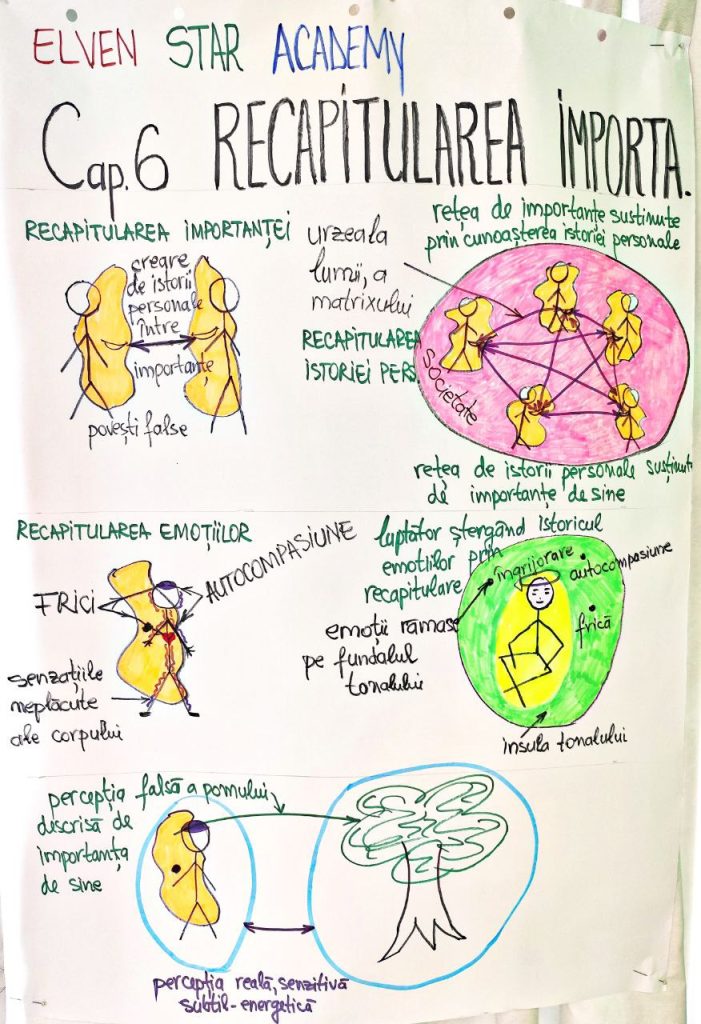 ELVEN STAR ACADEMY
Cap. 6 RECAPITULAREA IMPORTA.
RECAPITULAREA IMPORTANȚEI
creare
de istorii
personale
între
importanțe
povești false
urzeala
lumii, a
matrixului
RECAPITULAREA
ISTORIEI PERS.
rețea de importanțe susținute
prin cunoașterea istoriei personale
SOCIETATE
rețea de istorii personale susținut
de importanțe de sine
RECAPITULAREA EMOȚIILOR
FRICI
AUTOCOMPASIUNE
senzațiile
neplăcute
ale corpului
luptător ștergând istoricul
emoțiilor prin
recapitulare
îngrijorare
autocompasiune
frică
emoții rămase
pe fundalul
tonalului
insula tonalului
percepția falsă a pomului
discrisă de
importanța
de sine
percepția reală, senzitivă
subtil-energetică